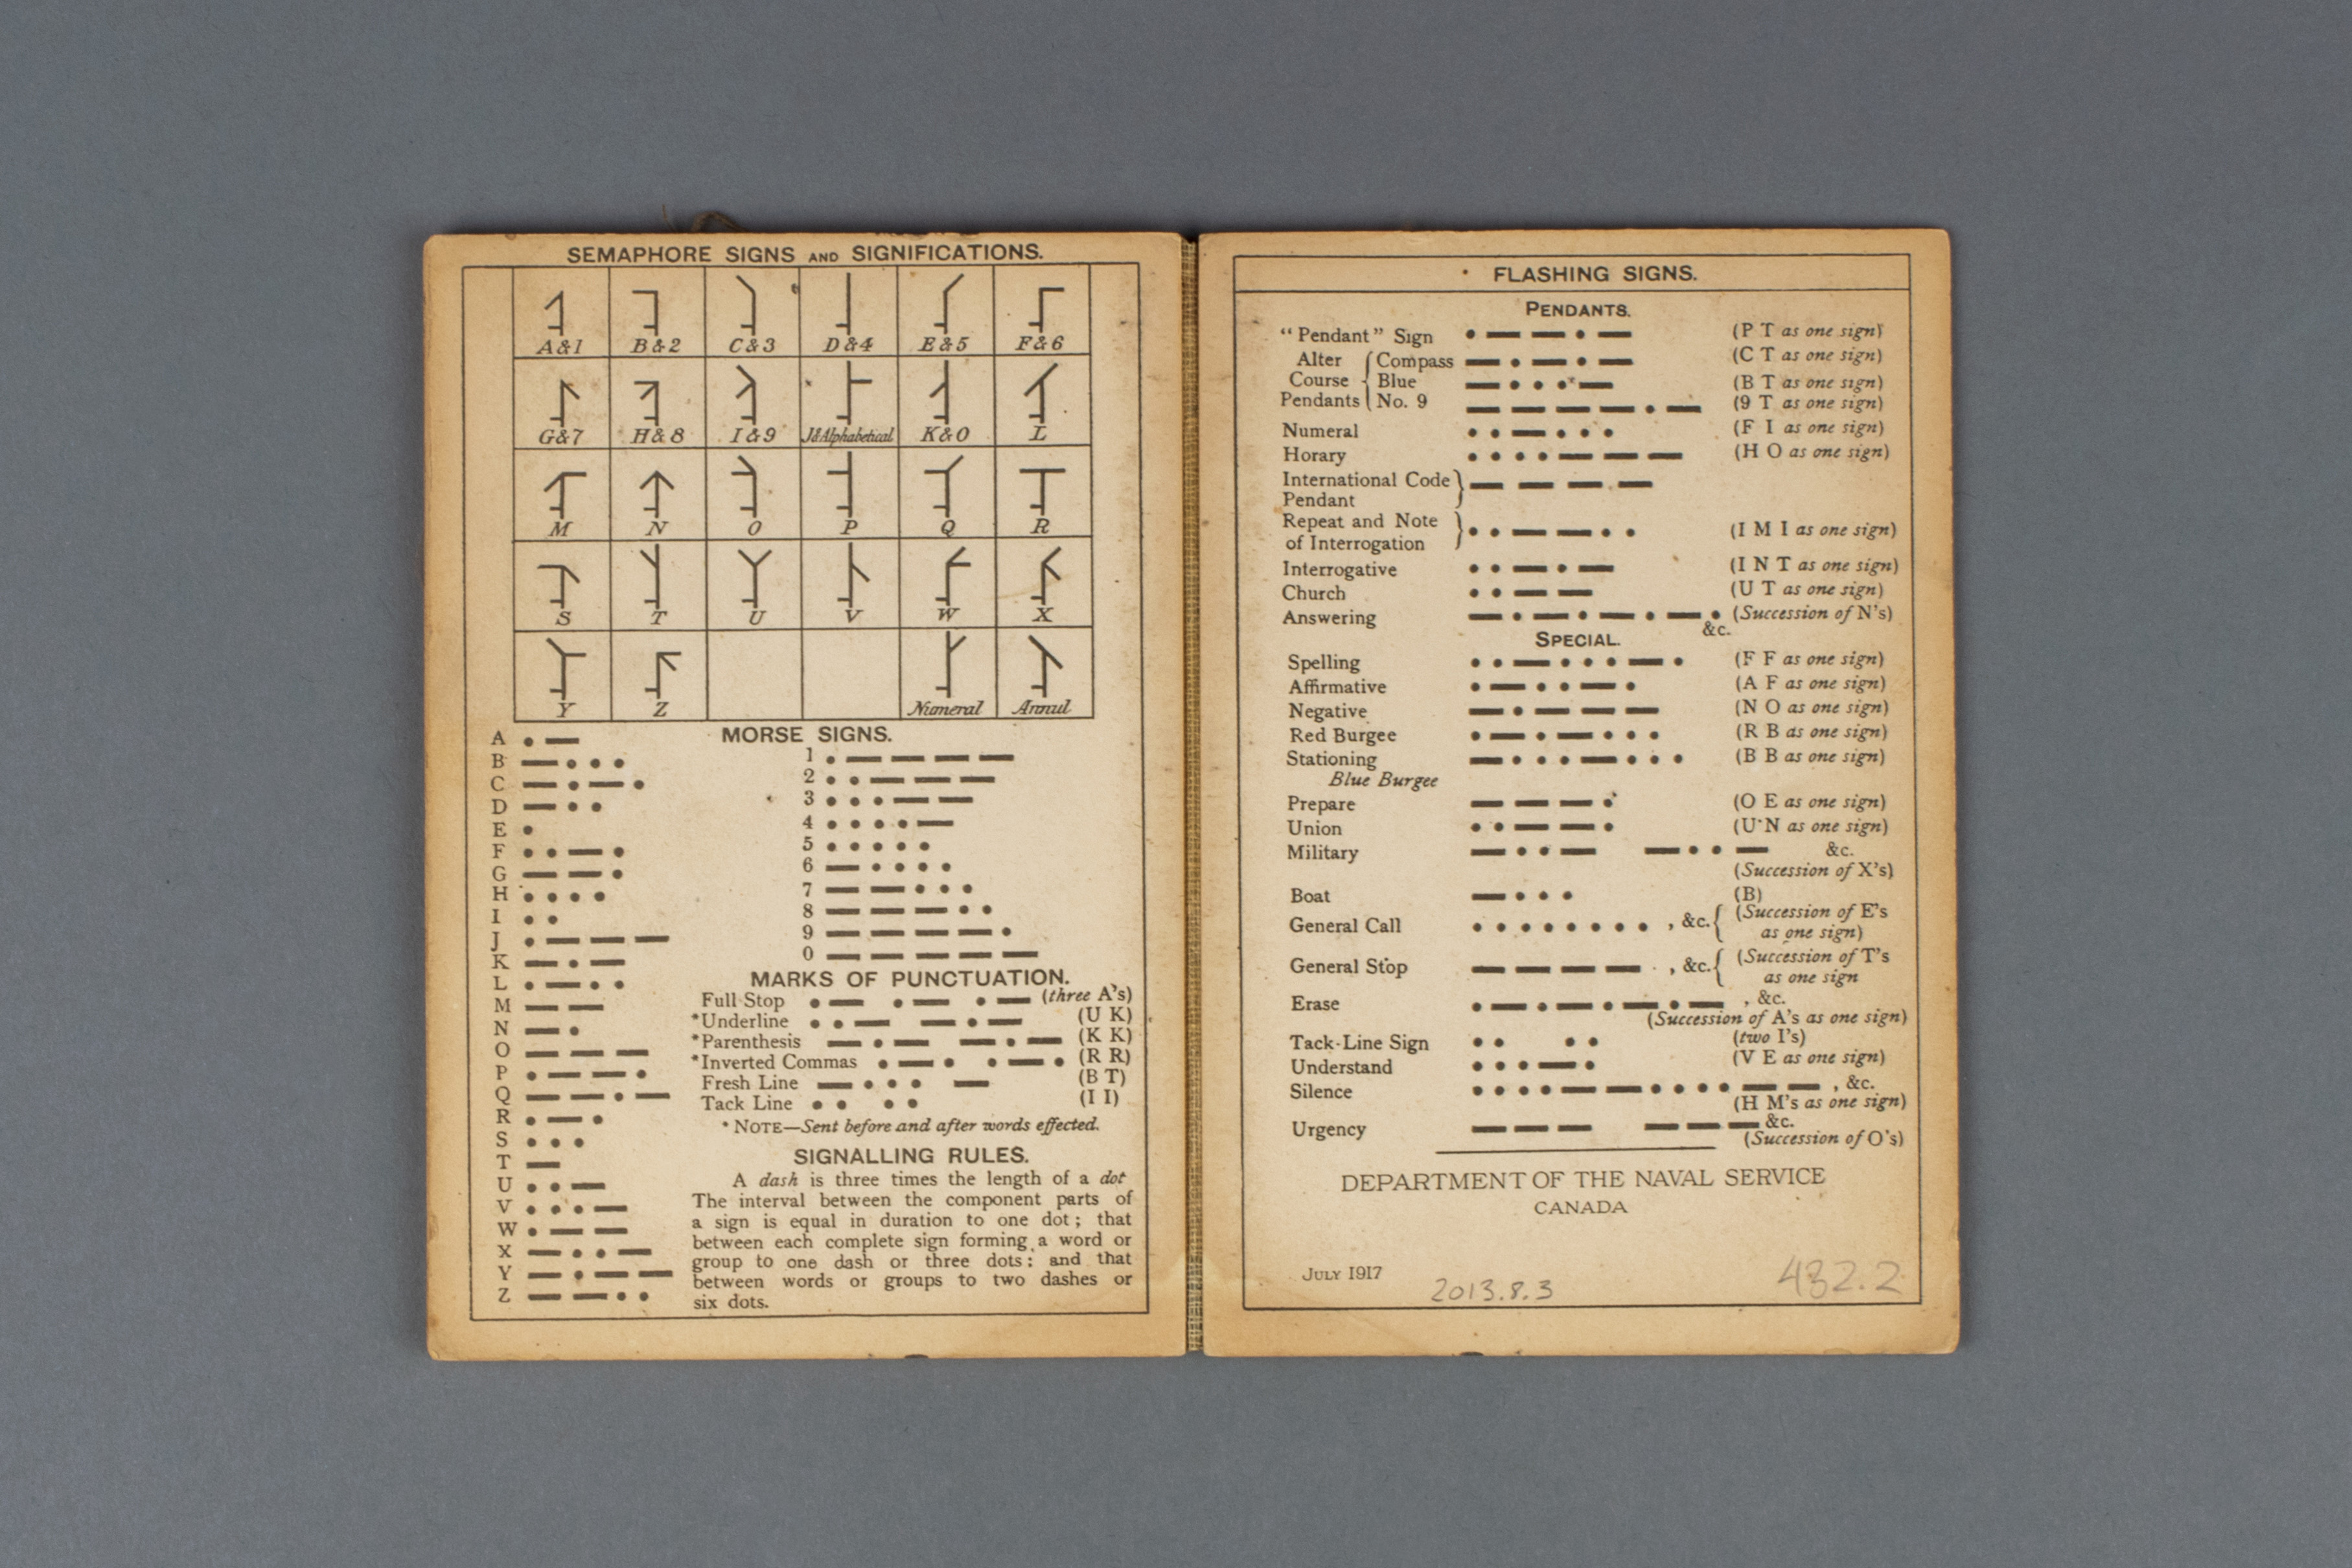 SEMAPHORE SIGNS AND SIGNIFICATIONS.
A&1 B&2 C&3 D&4 E&5 F&6
G&7 H&8 I&9 J&Alphabetical K&0 L
M N O P Q R
S T U V W X
Y Z Numeral Annul
MORSE SIGNS.
A • —
B — • • •
C — • — •
D — • •
E •
F • • — •
G — — •
H • • • •
I • •
J • — — —
K — • —
L • — • •
M — —
N — •
O — — —
P • — — •
Q — — • —
R • — •
S • • •
T —
U • • —
V • • • —
W • — —
X — • • —
Y — • — —
Z — — • •
1 • — — — —
2 • • — — —
3 • • • — —
4 • • • • —
5 • • • • •
6 — • • • •
7 — — • • •
8 — — — • •
9 — — — — •
0 — — — — —
MARKS OF PUNCTUATION.
Full Stop • — • — • — (three A's)
*Underline • • — — • — (U K)
*Parenthesis — • — — • — (K K)
*Inverted Commas • — • • — • (R R)
Fresh Line — • • • — (B T)
Tack Line • • • • (I I)
* NOTE—Sent before and after words effected.
SIGNALLING RULES.
A dash is three times the length of a dot
The interval between the component parts of
a sign is equal in duration to one dot; that
between each complete sign forming a word or
group to one dash or three dots: and that
between words or groups to two dashes or
six dots.
FLASHING SIGNS.
PENDANTS.
"Pendant" Sign • — — • — (P T as one sign)
Alter Compass — • — • — (C T as one sign)
Course Blue — • • • — (B T as one sign)
Pendants No. 9 — — — — • — (9 T as one sign)
Numeral • • — • • • (F I as one sign)
Horary • • • • — — — (H O as one sign)
International Code — — — —
Pendant
Repeat and Note
of Interrogation • • — — • • (I M I as one sign)
Interrogative • • — • — (I N T as one sign)
Church • • — — (U T as one sign)
Answering — • — • — • — • (Succession of N's)
&c.
SPECIAL.
Spelling • • — • • • — • (F F as one sign)
Affirmative • — • • — • (A F as one sign)
Negative — • — — — (N O as one sign)
Red Burgee • — • — • • • (R B as one sign)
Stationing — • • • — • • • (B B as one sign)
Blue Burgee
Prepare — — — • (O E as one sign)
Union • • — — • (U N as one sign)
Military — • • — — • • — &c.
(Succession of X's)
Boat — • • • (B)
General Call • • • • • • • • , &c. (Succession of E's
as one sign)
General Stop — — — — , &c. (Succession of T's
as one sign
Erase • — • — • — • — , &c.
(Succession of A's as one sign)
Tack-Line Sign • • • • (two I's)
Understand • • • — • (V E as one sign)
Silence • • • • — — • • • • — — , &c.
(H M's as one sign)
Urgency — — — — — — &c.
(Succession of O's)
DEPARTMENT OF THE NAVAL SERVICE
CANADA
JULY 1917
2013.8.3
432.2